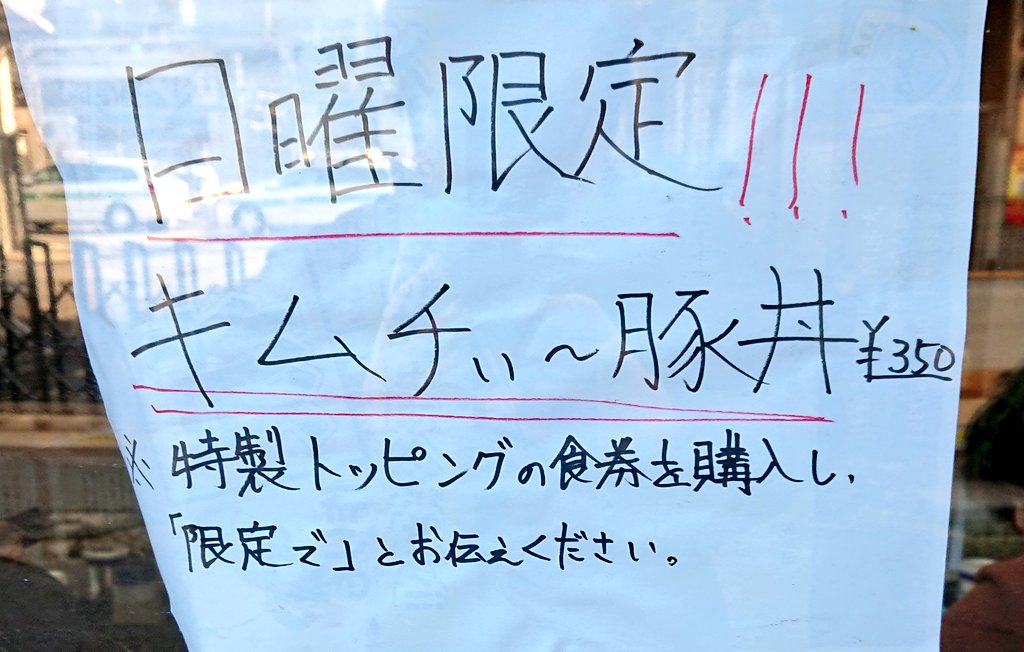 日曜限定!!!
キムチぃ～豚丼¥350
※特製トッピングの食券を購入し、
「限定で」とお伝えください。